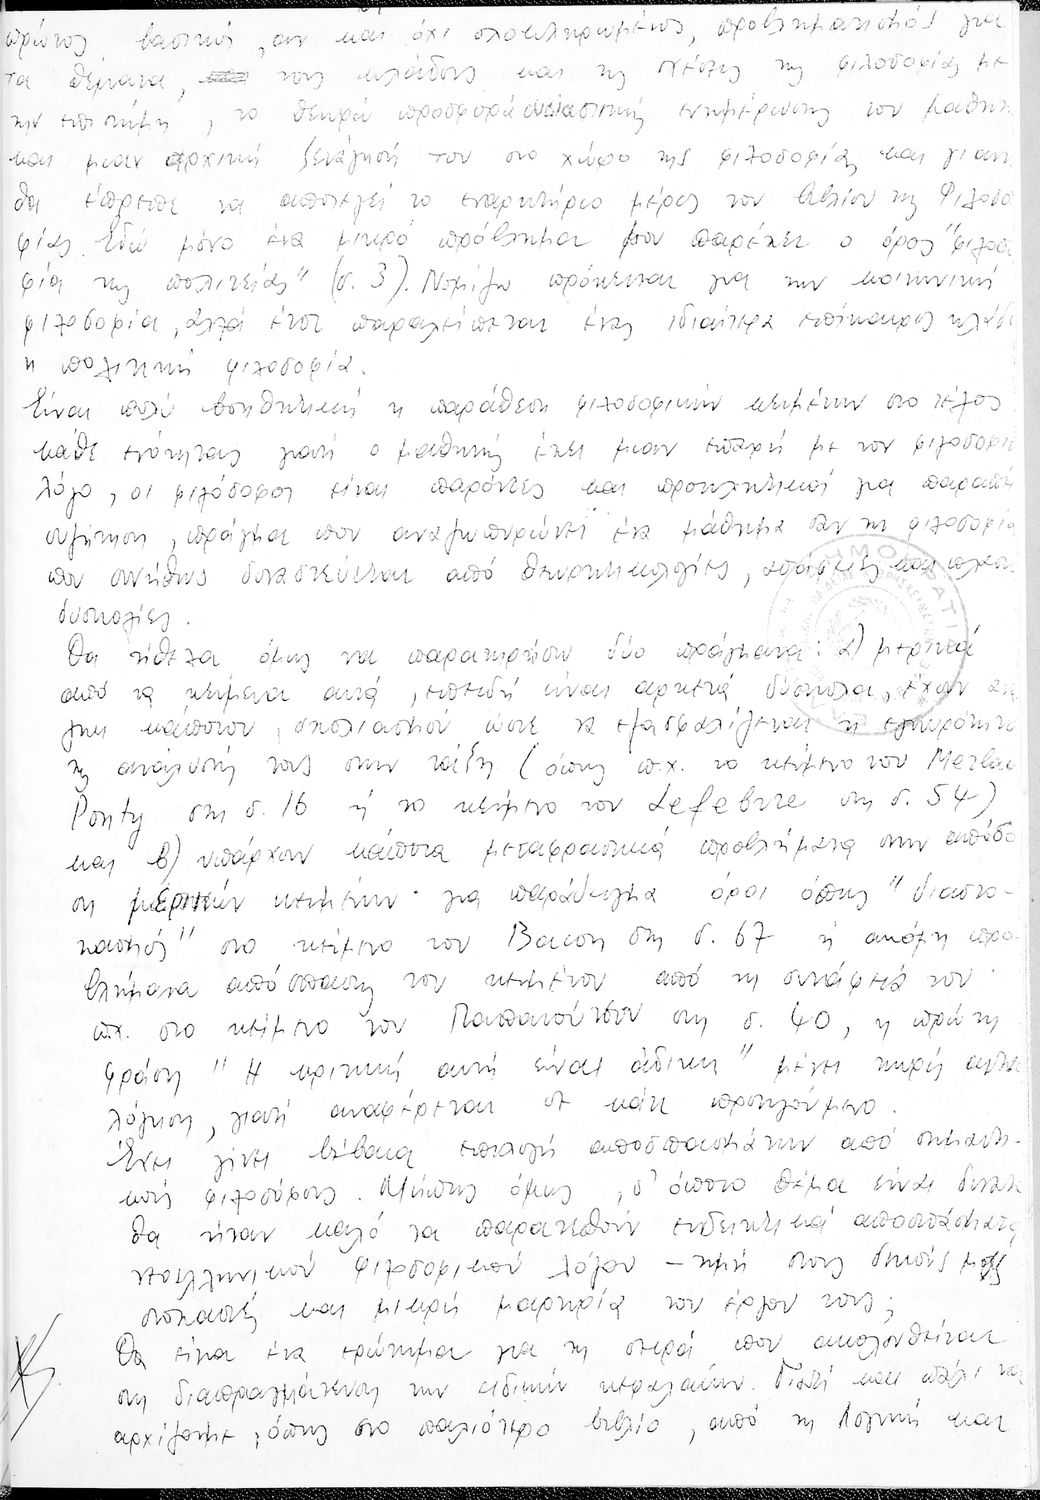 πρώτος, βασικός, αν και όχι ολοκληρωμένος, προβληματισμός για
τα θέματα, τους κλάδους και τη σχέση της φιλοσοφίας με
την επιστήμη, το θεωρώ προσφορά ουσιαστικής ενημέρωσης του μαθητή
και μιαν αρχική ξενάγησή του στο χώρο της φιλοσοφίας και γιαυτό
θα έπρεπε να αποτελεί το εναρκτήριο μέρος του βιβλίου της Φιλοσο
φίας. Εδώ μόνο ένα μικρό πρόβλημα μου παρέχει ο όρος "φιλοσο
φία της πολιτείας" (σ. 3). Νομίζω πρόκειται για την κοινωνική
φιλοσοφία, αλλά έτσι παραλείπεται ένας ιδιαίτερα επίκαιρος κλάδος
η πολιτική φιλοσοφία.
Είναι πολύ βοηθητική η παράθεση φιλοσοφικών κειμένων στο τέλος
κάθε ενότητας γιατί ο μαθητής έχει μιαν επαφή με τον φιλοσοφικό
λόγο, οι φιλόσοφοι είναι παρόντες και προκλητικοί για παραπέρα
συζήτηση, πράγμα που αναζωπυρώνει ένα μάθημα σαν τη φιλοσοφία
που συνήθως δυναστεύεται από θεωρητικολογίες, και
δυσκολίες.
Θα ήθελα όμως να παρατηρήσω δύο πράγματα: α) μερικά
από τα κείμενα αυτά, επειδή είναι αρκετά δύσκολα, έχουν ανά
γκη κάποιου σχολιασμού ώστε να εξασφαλίζεται η εγκυρότητα
της ανάλυσής τους στην τάξη (όπως π.χ. το κείμενο του Merleau
Ponty στη σ. 16 ή το κείμενο του Lefebvre στη σ. 54)
και β) υπάρχουν κάποια μεταφραστικά προβλήματα στην απόδο
ση μερικών κειμένων· για παράδειγμα όροι όπως "διαστο-
χασμός" στο κείμενο του Bacon στη σ. 67 ή ακόμη προ-
βλήματα απόσπασης του κειμένου από τη συνάφειά του·
π.χ. στο κείμενο του Παπανούτσου στη σ. 40, η πρώτη
φράση "Η κριτική αυτή είναι άδικη" μένει χωρίς αιτιο
λόγηση, γιατί αναφέρεται σε κάτι προηγούμενο.
Έχει γίνει βέβαια επιλογή αποσπασμάτων από σημαντι-
κούς φιλοσόφους. Μήπως όμως, σ' όποιο θέμα είναι δυνατό
θα ήταν καλό να παρατεθούν ενδεικτικά αποσπάσματα
νεοελληνικού φιλοσοφικού λόγου – τιμή στους δικούς μας
στοχαστές και μικρή μαρτυρία του έργου τους;
Θα είχα ένα ερώτημα για τη σειρά που ακολουθείται
στη διαπραγμάτευση των ειδικών κεφαλαίων. Γιατί και πάλι να
αρχίζουμε, όπως στο παλιότερο βιβλίο, από τη Λογική και